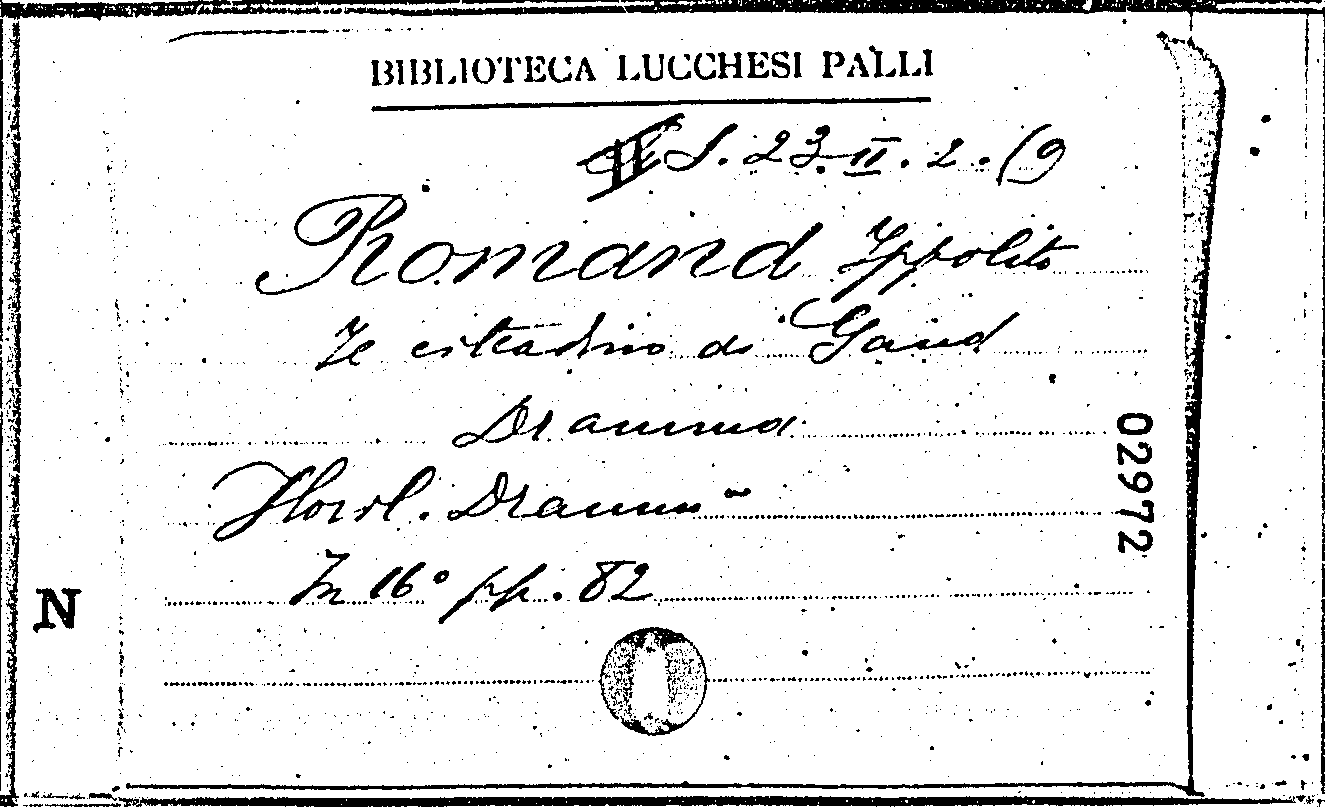 BIBLIOTECA LUCCHESI PALLI
S. 23. II. 2. (9
Romand Ippolito
Il cittadino di Gand
Dramma
Dramm
In 16° pp. 82
02972
N